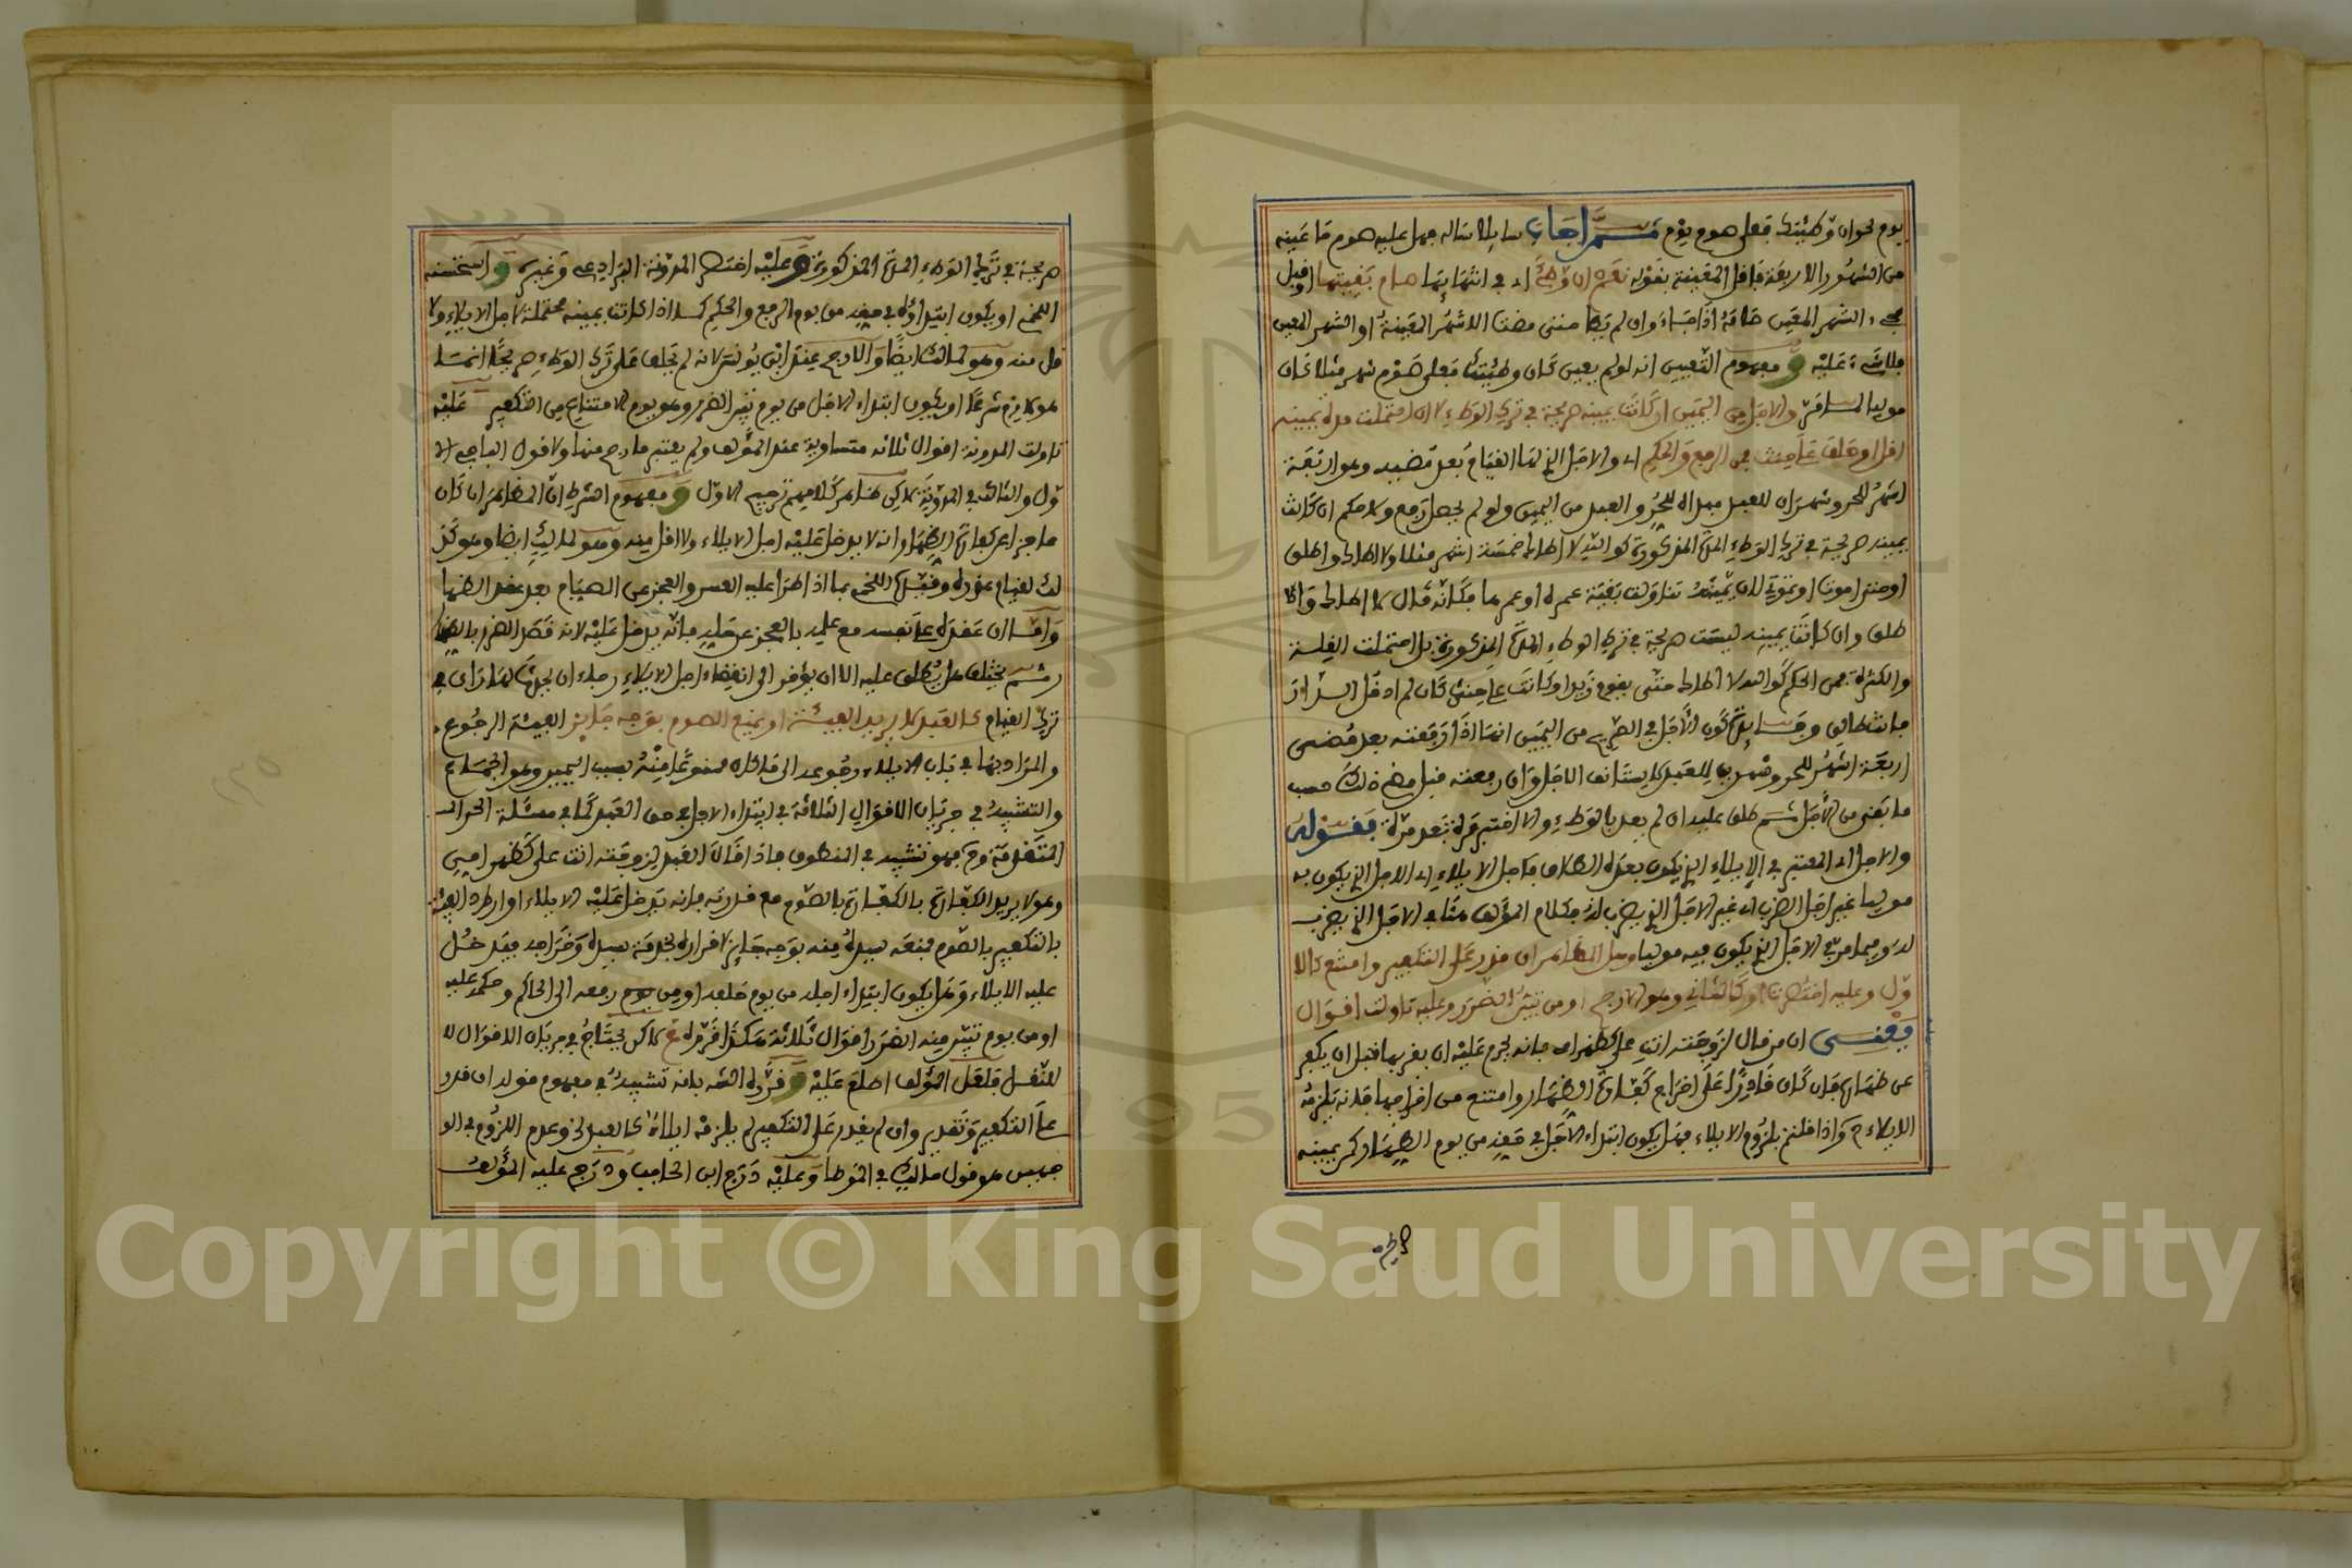 يوم نحو ان وطئتك فعلي صوم يوم ثم اجاب سايلا ساله هل عليه صوم ما عينه
من الشهور الاربعة فاقل المعينة بقوله نعم ان وطئ اي في اثنائها صام بقيتها او قبل
مجيء الشهر المعين صامه اذا جاء وان لم يطا حتى مضت الاشهر المعينة او الشهر المعين
فلا شيء عليه ومفهوم التعيين انه لو لم يعين كان وطئتك فعلي صوم شهر مثلا كان
موليا والاجل من اليمين ان كانت يمينه صريحة في ترك الوطء لا ان احتملت مدة يمينه
اقل او حلف على حنث فمن الرفع والحكم اي والاجل الذي لها القيام بعد مضيه وهو اربعة
اشهر للحر وشهران للعبد مبداه للحر والعبد من اليمين ولو لم يحصل رفع ولا حكم ان كانت
يمينه صريحة في ترك الوطء المدة المذكورة كوالله لا اطاك خمسة اشهر مثلا ولا اطاك واطلق
او حتى اموت او تموتي لان يمينه تناولت بقية عمره او عمرها فكانه قال لا اطاك واطلق
وان كانت يمينه ليست صريحة في ترك الوطء المدة المذكورة بل احتملت القلة
والكثرة فمن الحكم كوالله لا اطاك حتى يقدم زيد او كانت على حنث كان لم ادخل الدار
فانت طالق وفايدة كون الاجل في الصريح من اليمين انها اذا رفعته بعد مضي
اربعة اشهر للحر وشهرين للعبد لا يستانف الاجل وان رفعته قبل مضي ذلك حسب
ما بقي من الاجل ثم طلق عليه ان لم يعد بالوطء والا اختبر مرة بعد مرة فقوله
والاجل اي المعتبر في الايلاء الذي يكون بعده الطلاق فاجل الايلاء اي الاجل الذي يكون به
موليا غير اجل الضرب اي غير الاجل الذي يضرب له فكلام المؤلف هنا في الاجل الذي يضرب
له وفيما مر في الاجل الذي يكون فيه موليا وهل المظاهر ان قدر على التكفير وامتنع كالا
ول وعليه اختصرت او كالثاني وهو الارجح او من تبين الضرر وعليه تاولت اقوال
يعني ان من قال لزوجته انت علي كظهر امي فانه يحرم عليه ان يقربها قبل ان يكفر
عن ظهاره فان كان قادرا على اخراج كفارة الظهار وامتنع من اخراجها فانه يلزمه
الايلاء واذا قلتم بلزوم الايلاء فهل يكون ابتداء الاجل في حقه من يوم الظهار كمن يمينه
صريحة في ترك الوطء المدة المذكورة وعليه اختصر المدونة البرادعي وغيره واستحسنه
اللخمي او يكون ابتداؤه في حقه من يوم الرفع والحكم كما اذا كانت يمينه محتملة لاجل الايلاء ولا
قل منه وهو لمالك ايضا والارجح عند ابن يونس لانه لم يحلف على ترك الوطء صريحا انما
هو لازم شرعا او يكون ابتداء الاجل من يوم تبين الضرر وهو يوم الامتناع من التكفير عليه
تاولت المدونة اقوال ثلاثة متساوية عند المؤلف ولم يعتبر ما رجح منها ولا قول الباجي الا
ول والثالث في المدونة لكن ظاهر كلامهم ترجيح الاول ومفهوم الشرط ان المظاهر ان كان
عاجزا عن كفارة الظهار انه لا يدخل عليه اجل الايلاء ولا اقل منه وهو لمالك ايضا وهو كذ
لك لقيام عذره وقيده اللخمي بما اذا طرا عليه العسر والعجز عن الصيام بعد عقد الظهار
واما ان عقده على نفسه مع علمه بالعجز عن حله فانه يدخل عليه لانه قصد الضرر بالظهار
ثم يختلف هل يطلق عليه الان او يؤخر الى انقضاء اجل الايلاء رجاء ان يحدث لها راي في
ترك القيام كالعبد لا يريد الفيئة او يمنع الصوم بوجه جايز الفيئة الرجوع
والمراد بها في باب الايلاء رجوعه الى ما كان ممنوعا منه بسبب اليمين وهو الجماع
والتشبيه في جريان الاقوال الثلاثة في ابتداء الاجل في حق العبد كما في مسئلة الحر
المتقدمة فهو تشبيه في المنطوق فاذا قال العبد لزوجته انت علي كظهر امي
وهو لا يريد الكفارة بالصوم مع قدرته فانه يدخل عليه الايلاء او اراد الفيئة
بالتكفير بالصوم فمنعه سيده منه بوجه جايز لاضراره بخدمة سيده وخراجه فيدخل
عليه الايلاء وهل يكون ابتداء اجله من يوم حلفه او من يوم رفعه الى الحاكم وحكمه عليه
او من يوم تبين منه الضرر اقوال ثلاثة هكذا قرره لكن يحتاج في جريان الاقوال لا
لنقل فلعل المؤلف اطلع عليه وقرره الشه بانه تشبيه في مفهوم قوله ان قدر
على التكفير وتقديره وان لم يقدر على التكفير لم يلزمه ايلاء كالعبد الخ وعدم اللزوم في الو
جهين هو قول مالك في الموطا وعليه درج ابن الحاجب ودرج عليه المؤلف